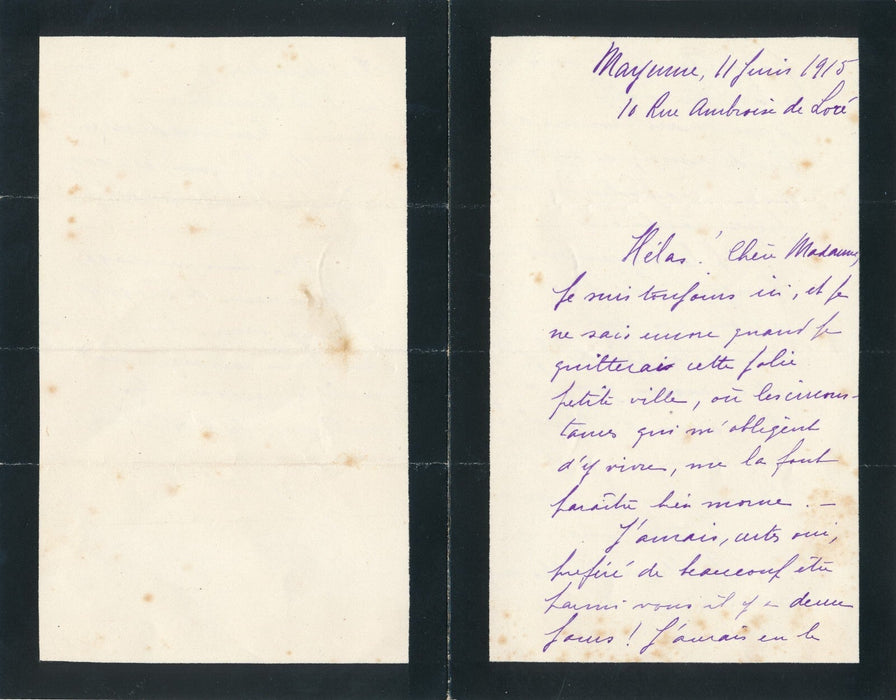 Mayenne, 11 Juin 1915
10 Rue Ambroise de Loré
Hélas ! Chère Madame,
Je suis toujours ici, et je
ne sais encore quand je
quitterais cette jolie
petite ville, où les circons-
tances qui m'obligent
d'y vivre, me la font
paraître bien morne. -
J'aurais, certes oui,
préféré de beaucoup être
parmi vous il y a deux
jours ! J'aurais eu le